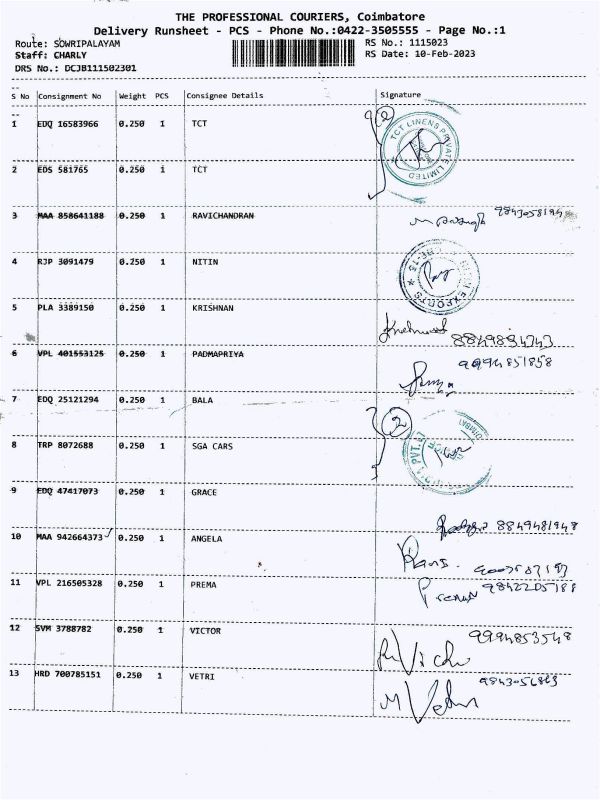 THE PROFESSIONAL COURIERS, Coimbatore
Delivery Runsheet - PCS - Phone No.:0422-3505555 - Page No.:1
Route: SOWRIPALAYAM RS No.: 1115023
Staff: CHARLY RS Date: 10-Feb-2023
DRS No.: DCJB111502301
S No Consignment No Weight PCS Consignee Details Signature
1 EDQ 16583966 0.250 1 TCT 2
TCT LINENS PRIVATE LIMITED
2 EDS 581765 0.250 1 TCT
3 MAA 858641188 0.250 1 RAVICHANDRAN
4 RJP 3091479 0.250 1 NITIN
EXPORTS
5 PLA 3389150 0.250 1 KRISHNAN
6 VPL 401553125 0.250 1 PADMAPRIYA 9994851858
7 EDQ 25121294 0.250 1 BALA 2
8 TRP 8072688 0.250 1 SGA CARS
PVT.
9 EDQ 47417073 0.250 1 GRACE
8849481948
10 MAA 942664373 0.250 1 ANGELA
11 VPL 216505328 0.250 1 PREMA
12 SVM 3788782 0.250 1 VICTOR 9994853548
13 HRD 700785151 0.250 1 VETRI